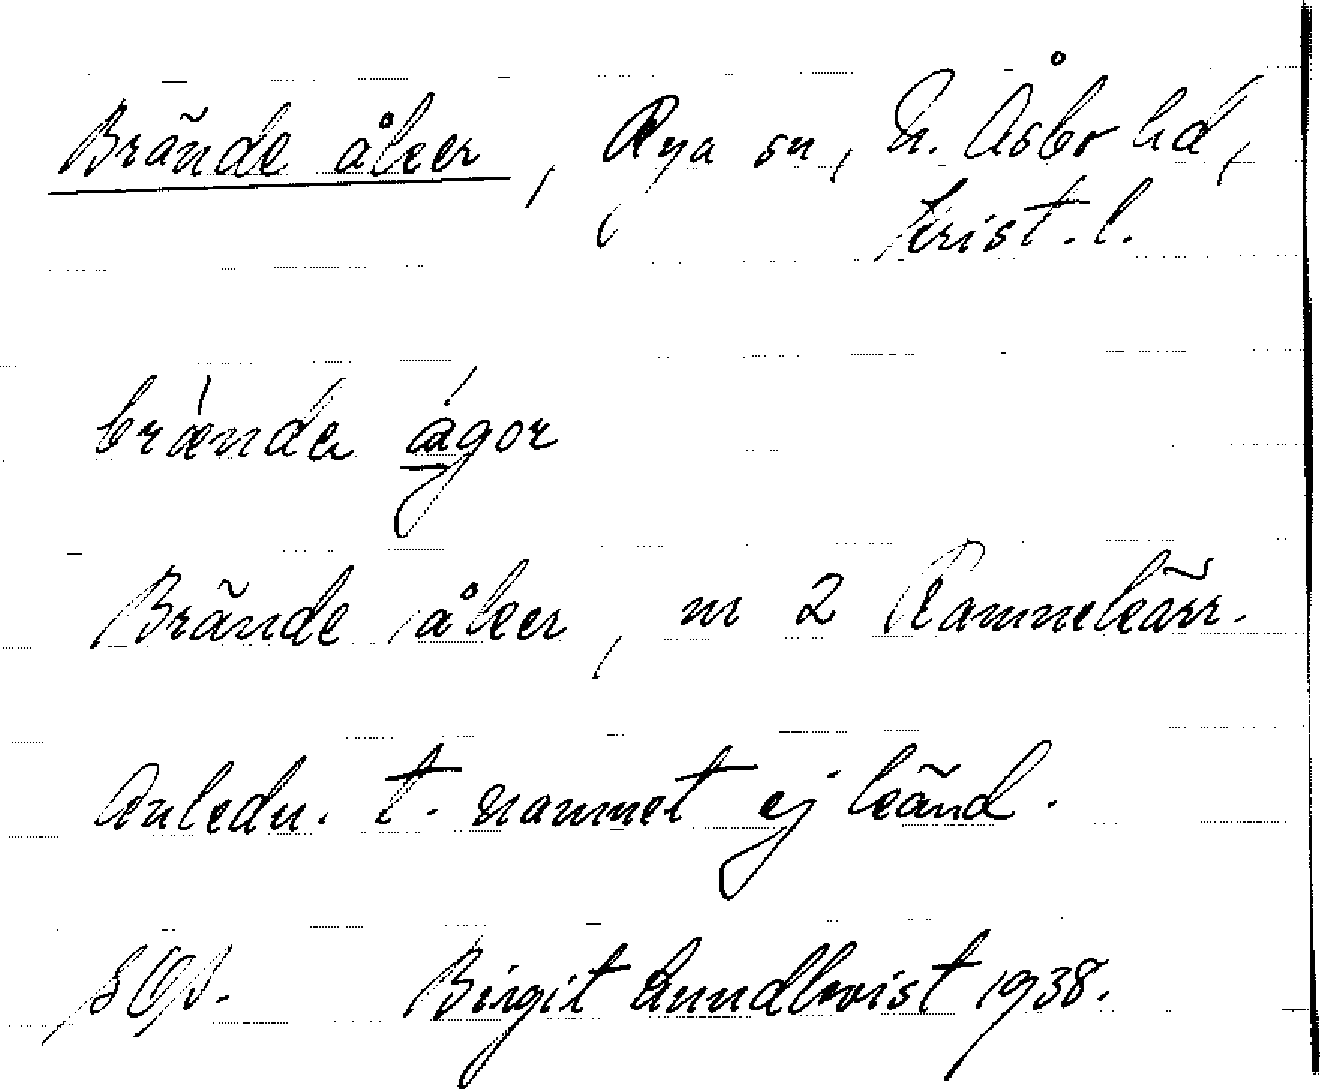 Brände åker, Rya sn, N. Åsbo hd,
Krist. l.
brænda ågor
Brände åker, nr 2 Rammekärr.
Anledn. t. namnet ej känd.
Birgit Lundkvist 1938.